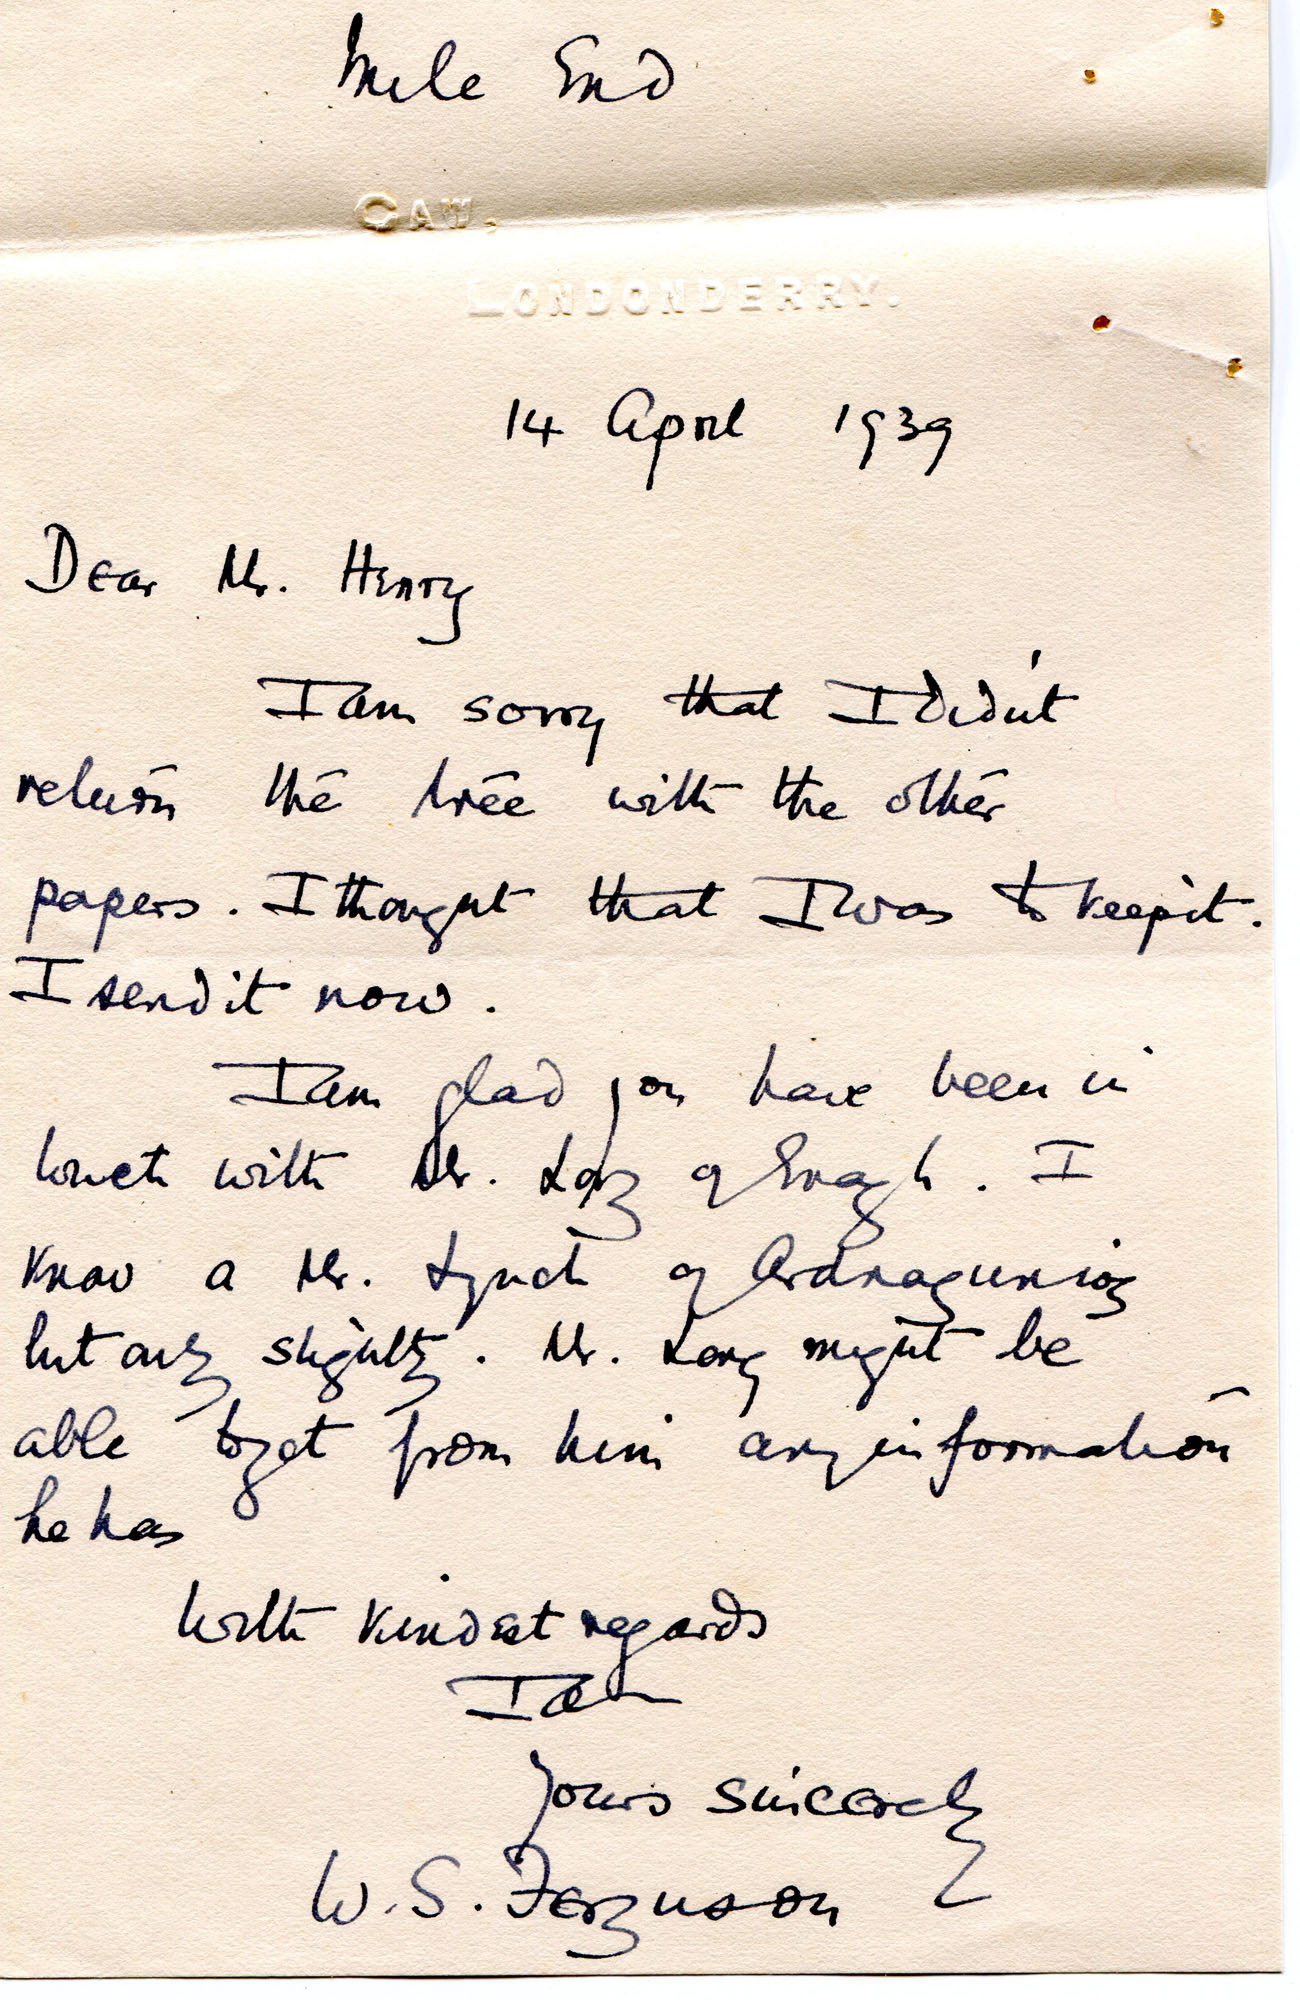 Mile End
CAW.
LONDONDERRY.
14 April 1939
Dear Mr. Henry
I am sorry that I didn't
return the tree with the other
papers. I thought that I was to keep it.
I send it now.
I am glad you have been in
touch with Mr. Long of Enagh. I
know a Mr. Lynch of Ardnaguniog
but only slightly. Mr. Long might be
able to get from him any information
he has
With kindest regards
I am
Yours sincerely
W. S. Ferguson